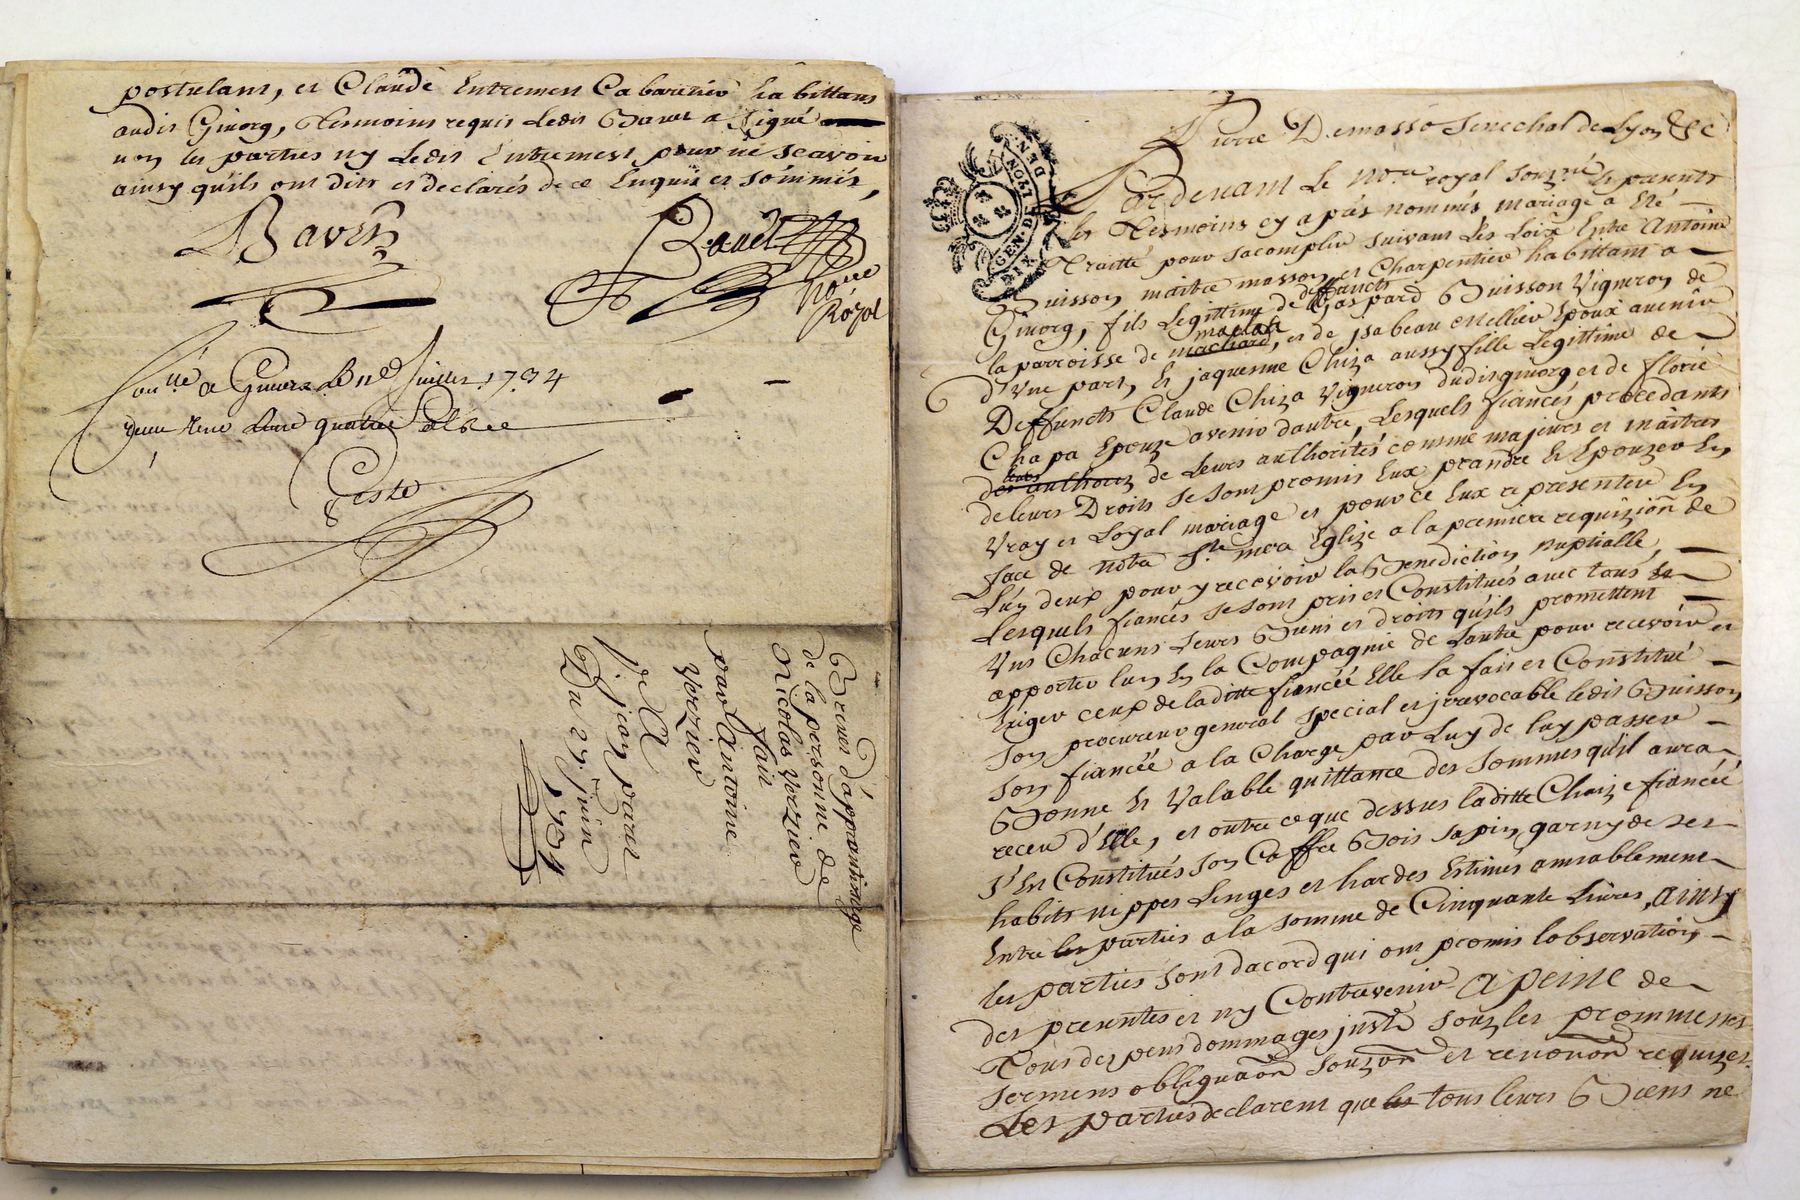 postulant, et Claude Entremen Cabarettier habittans
audit Givorg, tesmoins requis Ledit Baven a signé
non les parties ny Ledit Entremen pour ne scavoir
ainsy qu'ils ont dits et declarés de ce Enquis et sommés,
Baven
Bouet
No.re
Royal
Con.llé a Givors Le Juillet 1734
quatre
de
Brevet d'apprantissage
de la personne de
Nicolas Verzier
fait
par Antoine
Verzier
a
Du 27.e juin
1734
Pierre Demasso Senechal de Lyon &c
GEN. DE LYON
DIX DEN.
Pardevant Le No.re royal Souz.né et presents
les tesmoins cy apres nommés mariage a Eté
Traitté pour sacomplir suivant Les Loix Entre Antoine
Buisson maitre masson et Charpentier habittant a
Givorg, fils Legittime de deffunct Gaspard Buisson Vigneron de
la parroisse de machard, et de ysabeau Mellier Epoux avenir
D'Une part, Et jaquemme Chiza aussy fille Legittime de
Deffunct Claude Chiza Vigneron dudit givorg et de florie
Chapa Epouze avenir dautre, Lesquels fiancés procedants
de Leurs authorités comme majeurs et maitres
de leurs Droits se sont promis Eux prandre Et Epouzer En
Vray et Loyal mariage et pour ce Eux representer En
face de notre S.te mere Eglize a la premiere requizion de
L'un deux pour y recevoir la Benediction nuptialle,
Lesquels fiancés se sont pris et Constitués avec tous Et
Uns Chacuns Leurs Biens et droits qu'ils promettent
apporter lun En la Compagnie de Lautre pour recevoir et
Exiger ceux de laditte fiancée Elle la fait et Constitué
son procureur general special et jrrevocable ledit Buisson
son fiancée a la Charge par Luy de luy passer
Bonne Et Valable quittance des sommes qu'il aura
receu d'Elle, et outre ce que dessus laditte Chaize fiancée
s'Est Constitués son Coffre Bois sapin garny de ses
habits nippes Linges et hardes Estimés amiablement
Entre les parties a la somme de Cinquante Livres, ainsy
les parties sont dacord qui ont promis lobservation
des presentes et ny Contrevenir A peine de
Tous despens dommages justé souz les prommesses
sermens obligaõn souzõn et renonõn requizes
Les parties declarent que tous leurs Biens ne